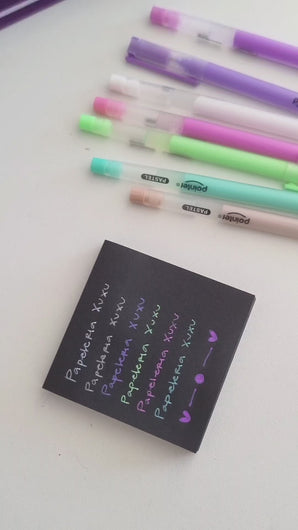 PASTEL pointer
PASTEL pointer
Papeteria Xuxu
Papeteria Xuxu
Papeteria Xuxu
Papeteria Xuxu
Papeteria Xuxu
Papeteria Xuxu